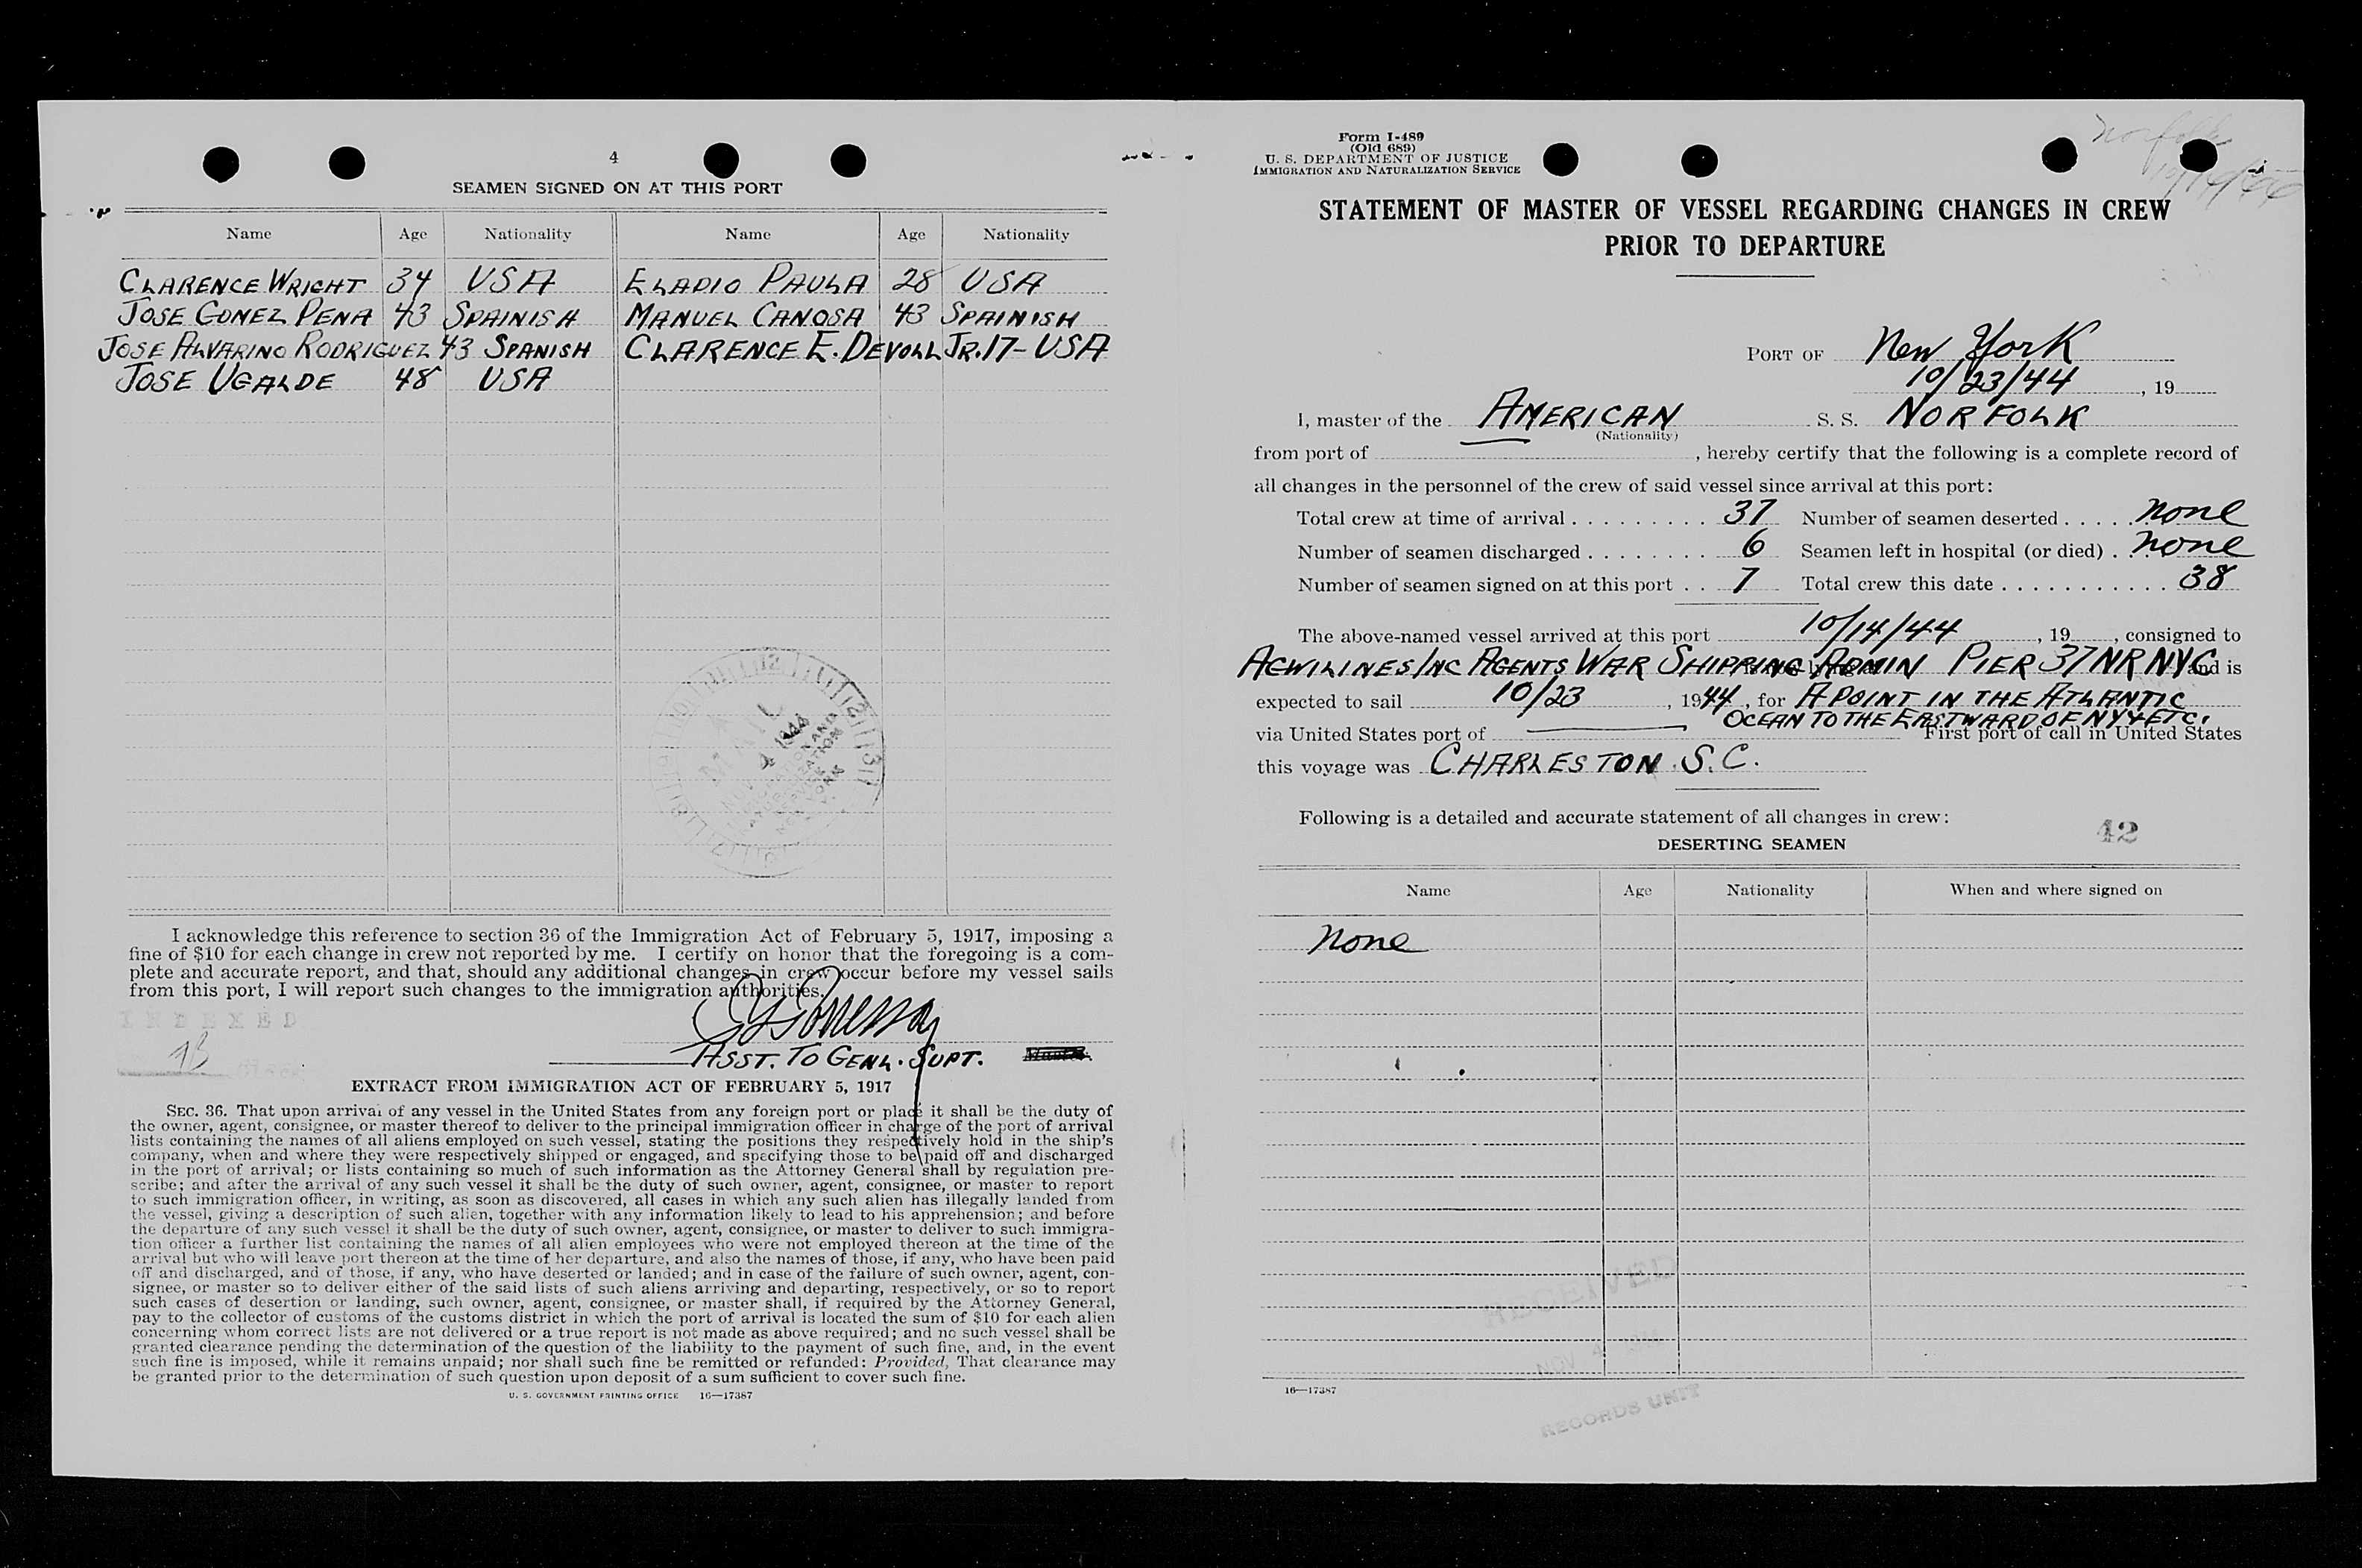 4
SEAMEN SIGNED ON AT THIS PORT
Name Age Nationality Name Age Nationality
CLARENCE WRIGHT 34 USA ELADIO PAULA 28 USA
JOSE GOMEZ PENA 43 SPAINISH MANUEL CANOSA 43 SPAINISH
JOSE ALVARINO RODRIGUEZ 43 SPANISH CLARENCE E. DEVOLL JR. 17- USA
JOSE UGALDE 48 USA
I acknowledge this reference to section 36 of the Immigration Act of February 5, 1917, imposing a
fine of $10 for each change in crew not reported by me. I certify on honor that the foregoing is a com-
plete and accurate report, and that, should any additional changes in crew occur before my vessel sails
from this port, I will report such changes to the immigration authorities.
INDEXED
ASST. TO GENL. SUPT. Master.
EXTRACT FROM IMMIGRATION ACT OF FEBRUARY 5, 1917
SEC. 36. That upon arrival of any vessel in the United States from any foreign port or place it shall be the duty of
the owner, agent, consignee, or master thereof to deliver to the principal immigration officer in charge of the port of arrival
lists containing the names of all aliens employed on such vessel, stating the positions they respectively hold in the ship's
company, when and where they were respectively shipped or engaged, and specifying those to be paid off and discharged
in the port of arrival; or lists containing so much of such information as the Attorney General shall by regulation pre-
scribe; and after the arrival of any such vessel it shall be the duty of such owner, agent, consignee, or master to report
to such immigration officer, in writing, as soon as discovered, all cases in which any such alien has illegally landed from
the vessel, giving a description of such alien, together with any information likely to lead to his apprehension; and before
the departure of any such vessel it shall be the duty of such owner, agent, consignee, or master to deliver to such immigra-
tion officer a further list containing the names of all alien employees who were not employed thereon at the time of the
arrival but who will leave port thereon at the time of her departure, and also the names of those, if any, who have been paid
off and discharged, and of those, if any, who have deserted or landed; and in case of the failure of such owner, agent, con-
signee, or master so to deliver either of the said lists of such aliens arriving and departing, respectively, or so to report
such cases of desertion or landing, such owner, agent, consignee, or master shall, if required by the Attorney General,
pay to the collector of customs of the customs district in which the port of arrival is located the sum of $10 for each alien
concerning whom correct lists are not delivered or a true report is not made as above required; and no such vessel shall be
granted clearance pending the determination of the question of the liability to the payment of such fine, and, in the event
such fine is imposed, while it remains unpaid; nor shall such fine be remitted or refunded: Provided, That clearance may
be granted prior to the determination of such question upon deposit of a sum sufficient to cover such fine.
U. S. GOVERNMENT PRINTING OFFICE 16—17387
Form I-489
(Old 689)
U. S. DEPARTMENT OF JUSTICE
IMMIGRATION AND NATURALIZATION SERVICE
Norfolk
STATEMENT OF MASTER OF VESSEL REGARDING CHANGES IN CREW
PRIOR TO DEPARTURE
PORT OF New York
10/23/44, 19
I, master of the AMERICAN S. S. NORFOLK
(Nationality)
from port of , hereby certify that the following is a complete record of
all changes in the personnel of the crew of said vessel since arrival at this port:
Total crew at time of arrival 37 Number of seamen deserted none
Number of seamen discharged 6 Seamen left in hospital (or died) none
Number of seamen signed on at this port 7 Total crew this date 38
The above-named vessel arrived at this port 10/14/44, 19 , consigned to
AGWILINES INC AGENTS WAR SHIPPING ADMIN PIER 37 NR NYC and is
expected to sail 10/23, 1944, for A POINT IN THE ATLANTIC
OCEAN TO THE EASTWARD OF NY & ETC.
via United States port of First port of call in United States
this voyage was CHARLESTON S.C.
Following is a detailed and accurate statement of all changes in crew:
42
DESERTING SEAMEN
Name Age Nationality When and where signed on
none
RECEIVED
NOV 4
16—17387
RECORDS UNIT